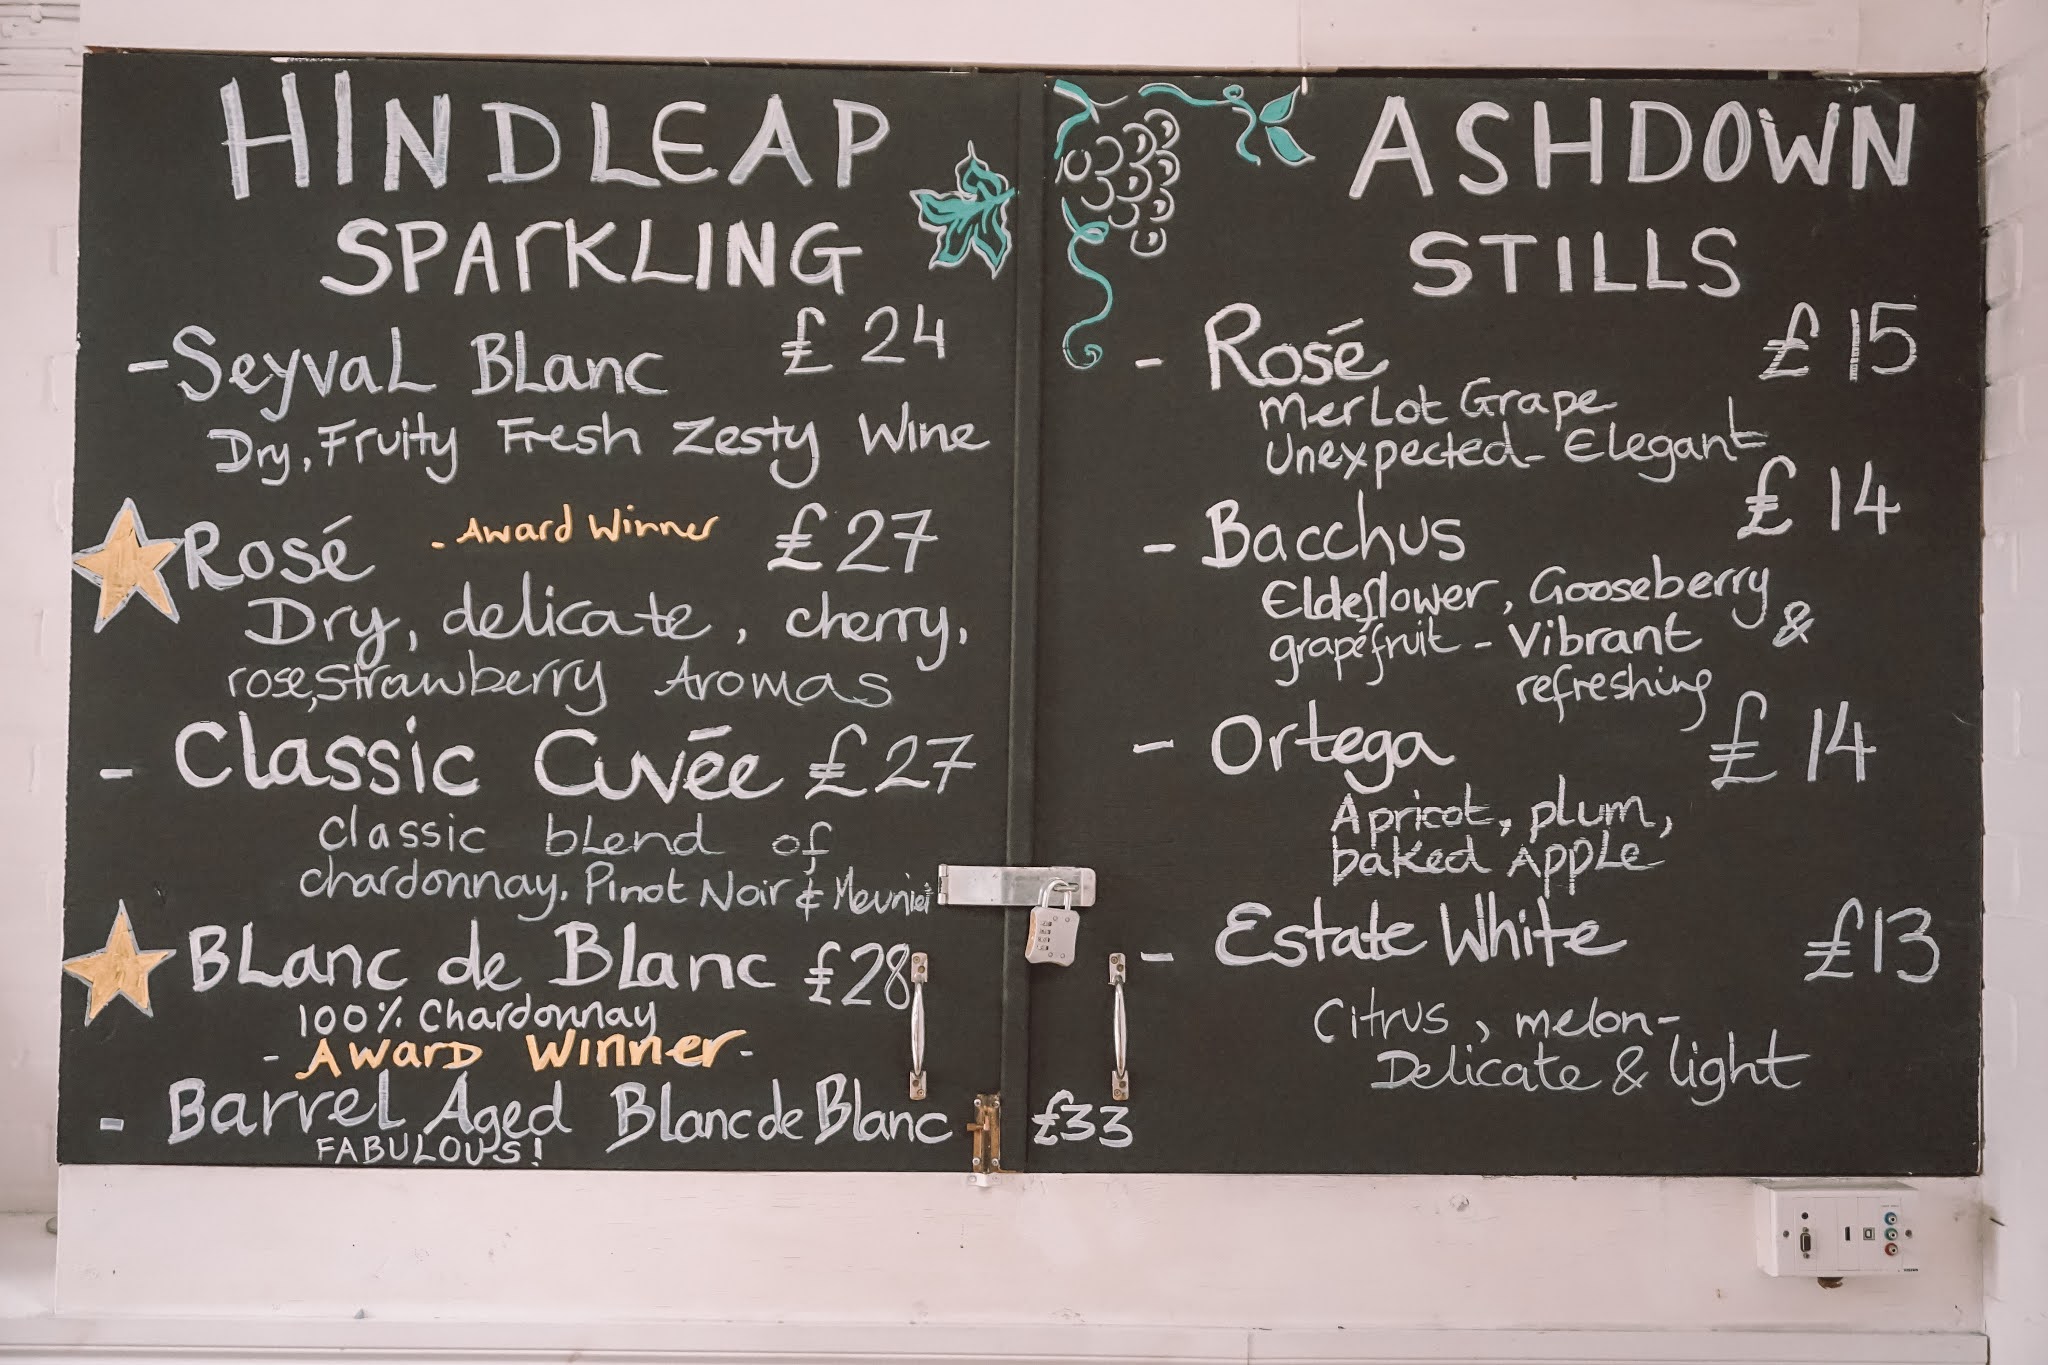 HINDLEAP
SPArKLING
- Seyval Blanc £24
Dry, Fruity Fresh Zesty Wine
Rosé - Award Winner £27
Dry, delicate, cherry,
rose, Strawberry Aromas
- Classic Cuvée £27
classic blend of
chardonnay, Pinot Noir & Meunier
Blanc de Blanc £28
100% Chardonnay
- Award Winner -
- Barrel Aged Blanc de Blanc £33
FABULOUS!
ASHDOWN
STILLS
- Rosé £15
Merlot Grape
Unexpected - Elegant
- Bacchus £14
Eldeflower, Gooseberry &
grapefruit - Vibrant
refreshing
- Ortega £14
Apricot, plum,
baked Apple
- Estate White £13
Citrus, melon -
Delicate & light